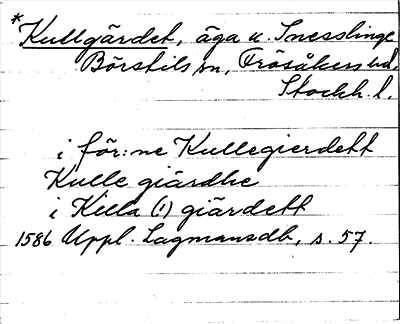 *Kullgärdet, äga u. Snesslinge
Börstils sn, Frösåkers hd,
Stockh. l.
i för:ne Kullegierdett
Kulle giärdhe
i Killa (!) giärdett
1586 Uppl. Lagmansdb, s. 57.